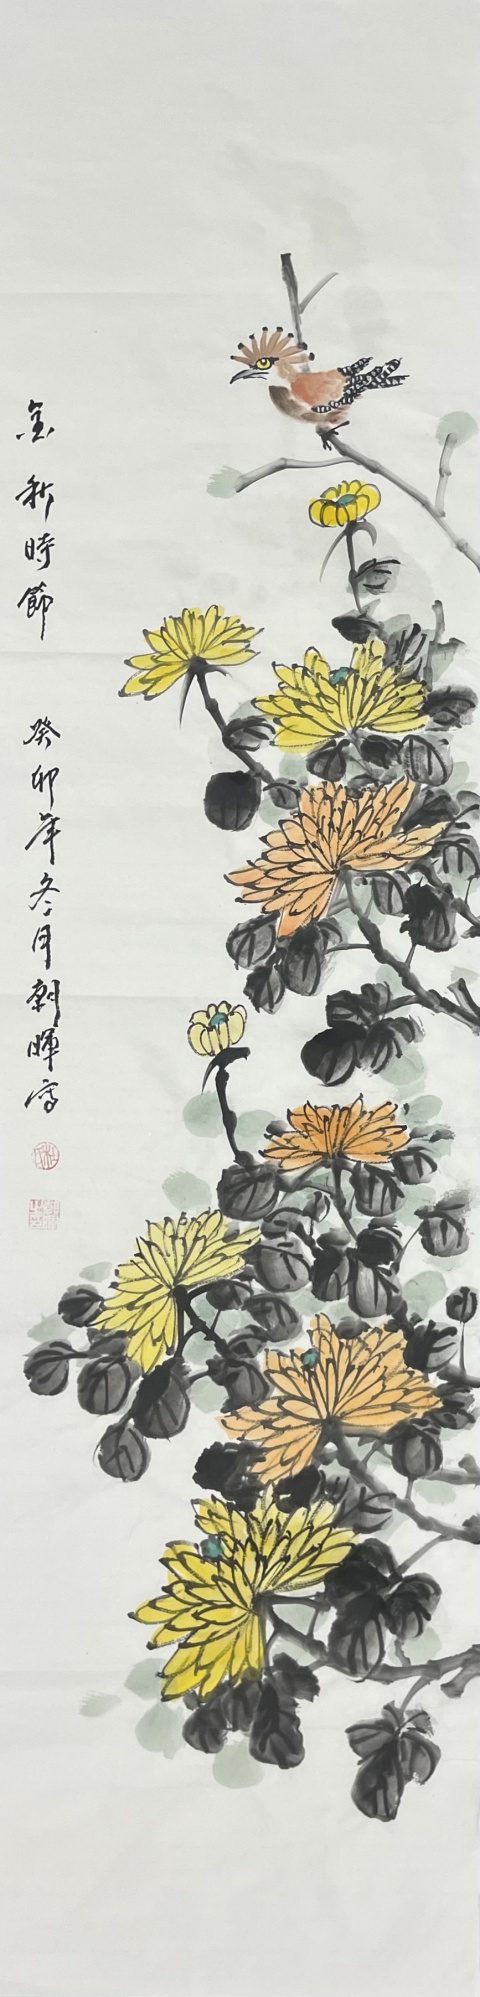 金秋時節
癸卯年冬月朝暉寫